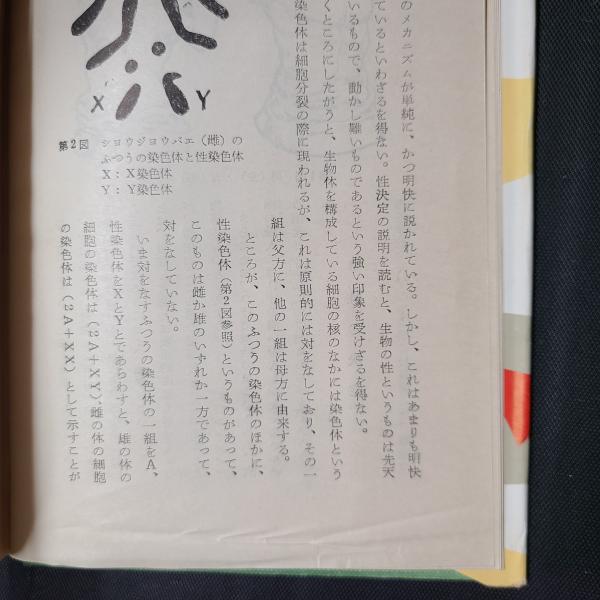 のメカニズムが単純に、かつ明快に説かれている。しかし、これはあまりも明快
ているといわざるを得ない。性決定の説明を読むと、生物の性というものは先天
いるもので、動かし難いものであるという強い印象を受けざるを得ない。
くところにしたがうと、生物体を構成している細胞の核のなかには染色体という
染色体は細胞分裂の際に現われるが、これは原則的には対をなしており、その一
組は父方に、他の一組は母方に由来する。
ところが、このふつうの染色体のほかに、
性染色体（第2図参照）というものがあって、
このものは雌か雄のいずれか一方であって、
対をなしていない。
いま対をなすふつうの染色体の一組をA、
性染色体をXとYとであらわすと、雄の体の
細胞の染色体は（2A＋XY）、雌の体の細胞
の染色体は（2A＋XX）として示すことが
X Y
第2図 ショウジョウバエ（雌）の
ふつうの染色体と性染色体
X：X染色体
Y：Y染色体